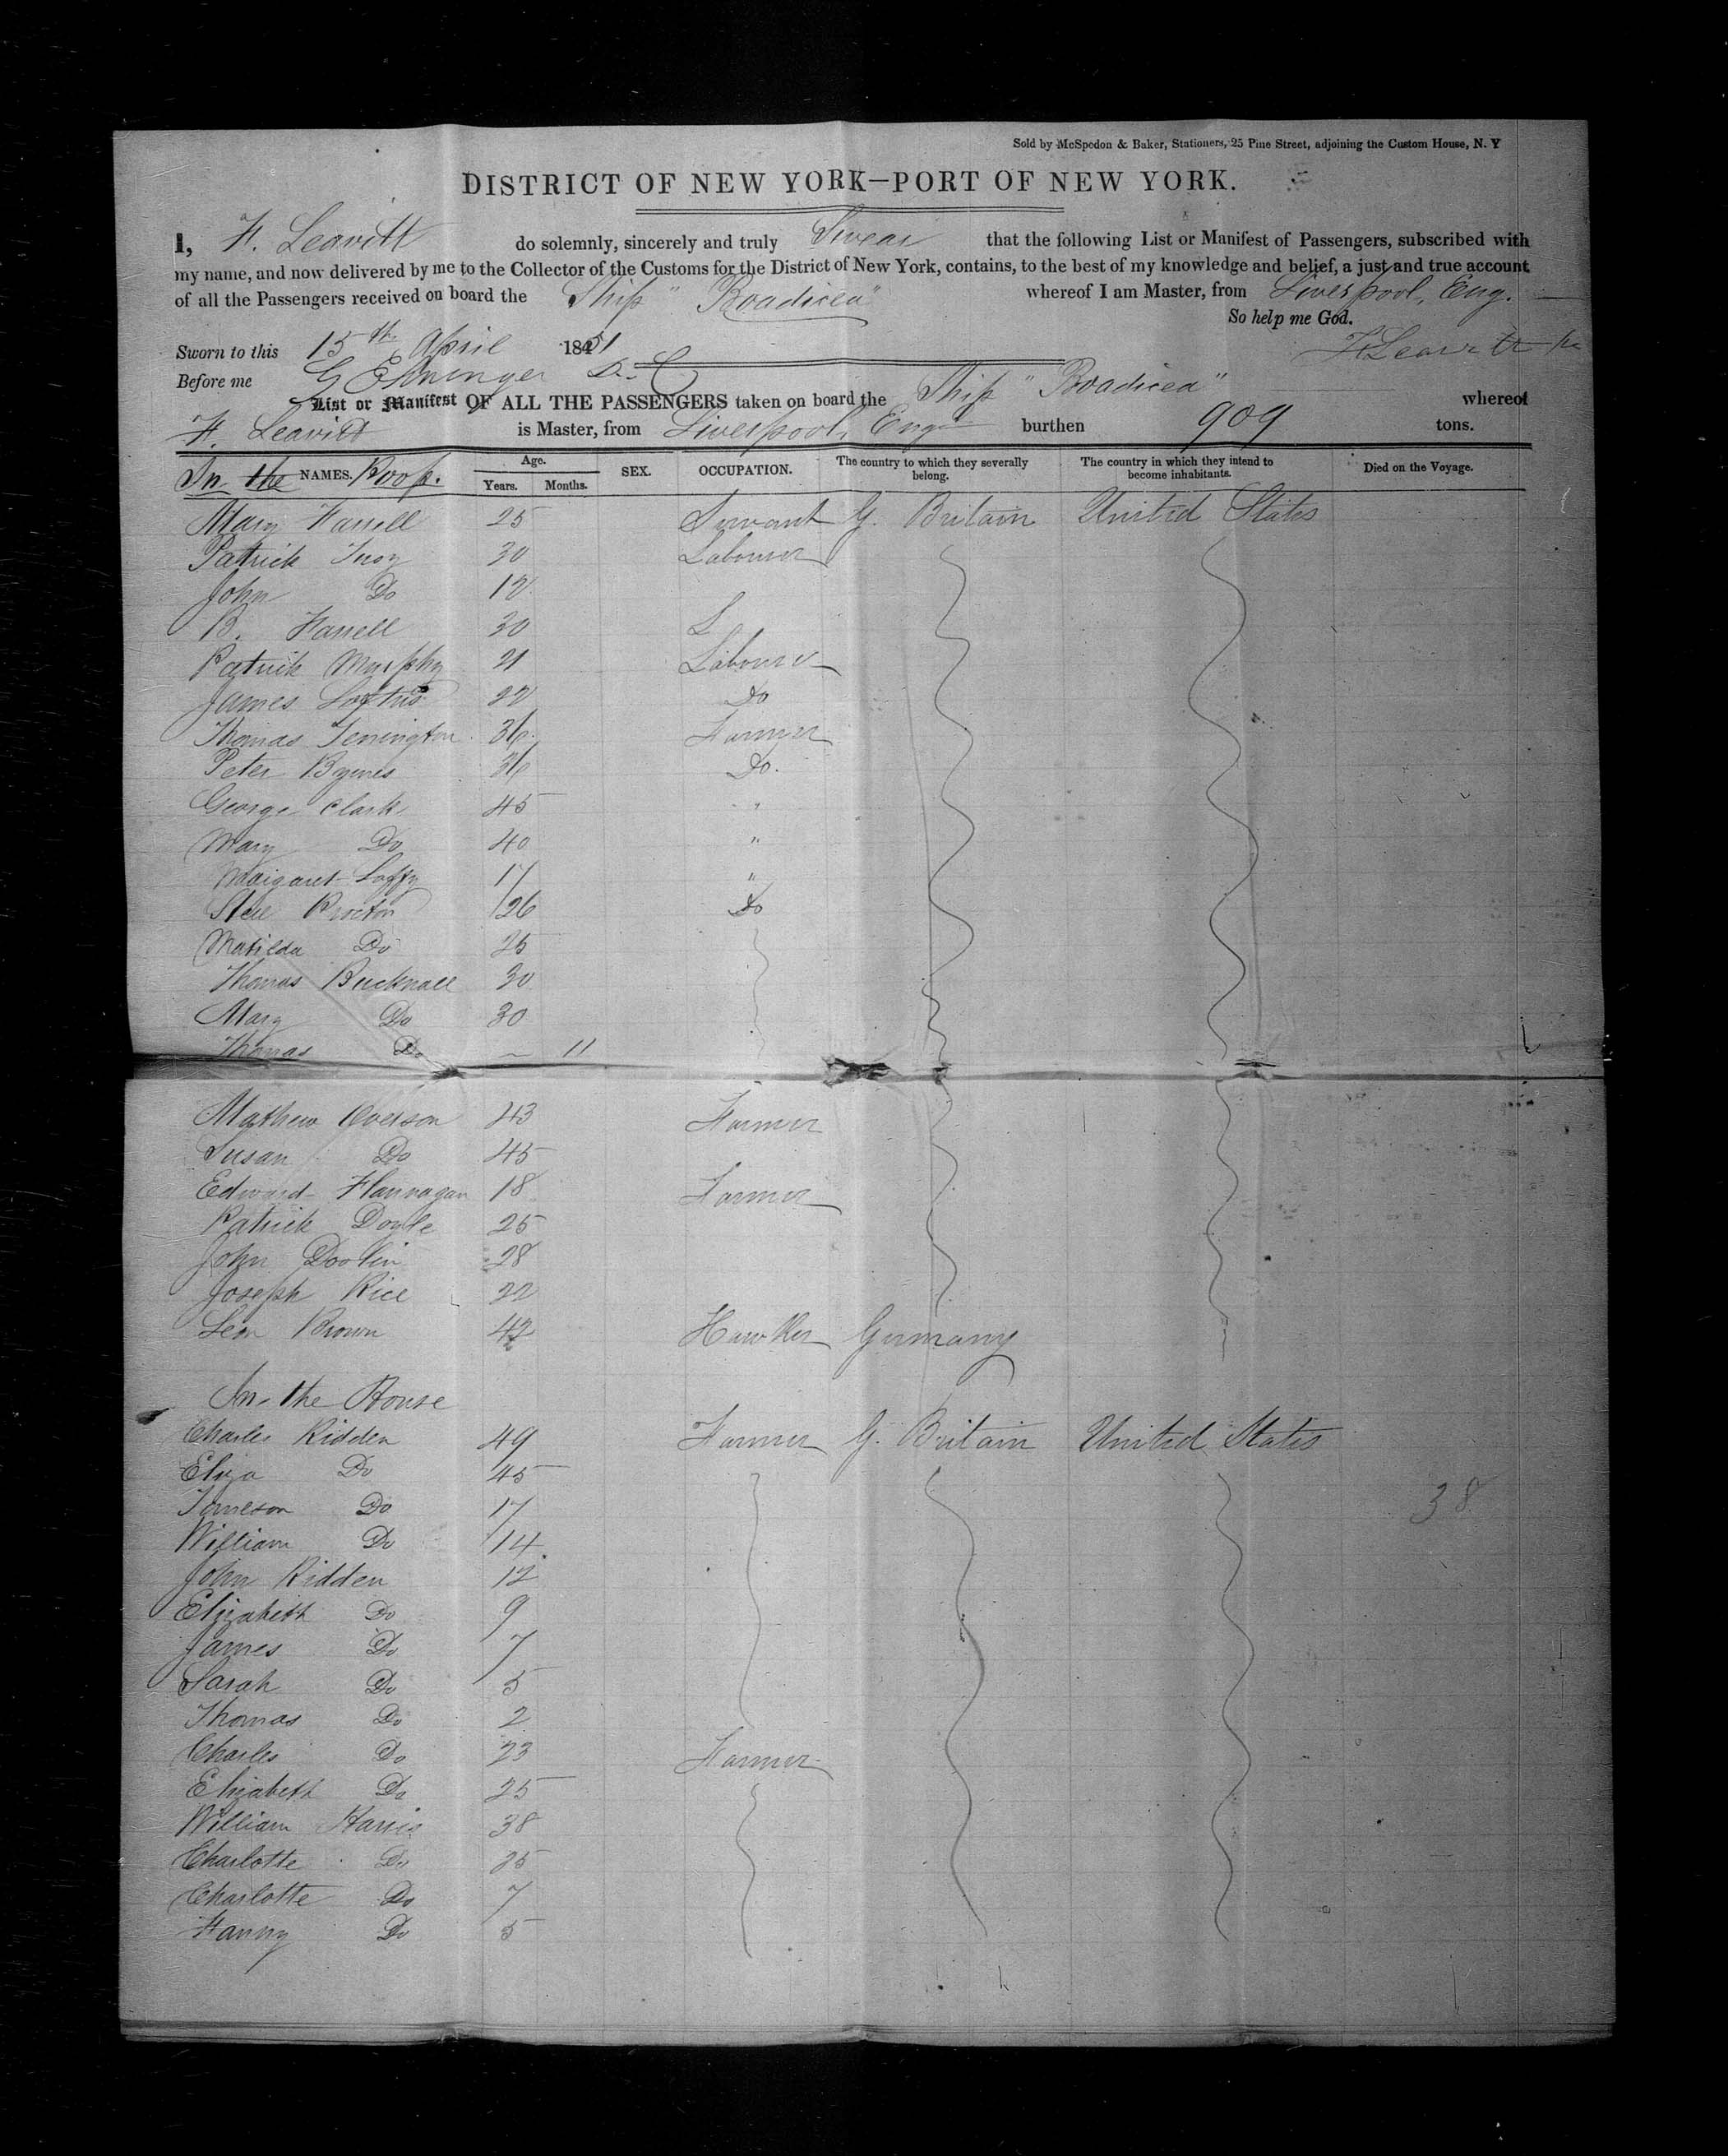 Sold by McSpedon & Baker, Stationers, 25 Pine Street, adjoining the Custom House, N. Y
DISTRICT OF NEW YORK—PORT OF NEW YORK.
I, F. Leavitt do solemnly, sincerely and truly Swear that the following List or Manifest of Passengers, subscribed with
my name, and now delivered by me to the Collector of the Customs for the District of New York, contains, to the best of my knowledge and belief, a just and true account
of all the Passengers received on board the Ship "Boadicea" whereof I am Master, from Liverpool, Eng.
So help me God.
Sworn to this 15th April 1851 F Leavitt
Before me D. C
List or Manifest OF ALL THE PASSENGERS taken on board the Ship "Boadicea" whereof
F. Leavitt is Master, from Liverpool, Eng burthen 909 tons.
In the NAMES. Poop. Age. Years. Months. SEX. OCCUPATION. The country to which they severally belong. The country in which they intend to become inhabitants. Died on the Voyage.
Mary Farrell 25 Servant G. Britain United States
Patrick 30 Labourer
John Do 12
B. Farrell 30 L
Patrick Murphy 21 Labourer
James Loftus 22 Do
Thomas 36 Farmer
Peter Byrnes 36 Do.
George Clark 45 "
Mary Do 40 "
Margaret 17 "
Procton 26 Do
Matilda Do 25
Thomas Bucknall 30
Mary Do 30
Thomas Do — 11
Mathew 43 Farmer
Susan Do 45
Edward Flannagan 18 Farmer
Patrick Doyle 25
John Doolin 28
Joseph Rice 22
Leon Brown 42 Hawker Germany
In the House
Charles Ridden 49 Farmer G. Britain United States
Eliza Do 45
Jameson Do 17 38
William Do 14
John Ridden 12
Elizabeth Do 9
James Do 7
Sarah Do 5
Thomas Do 2
Charles Do 23 Farmer
Elizabeth Do 25
William Harris 38
Charlotte Do 35
Charlotte Do 7
Fanny Do 5